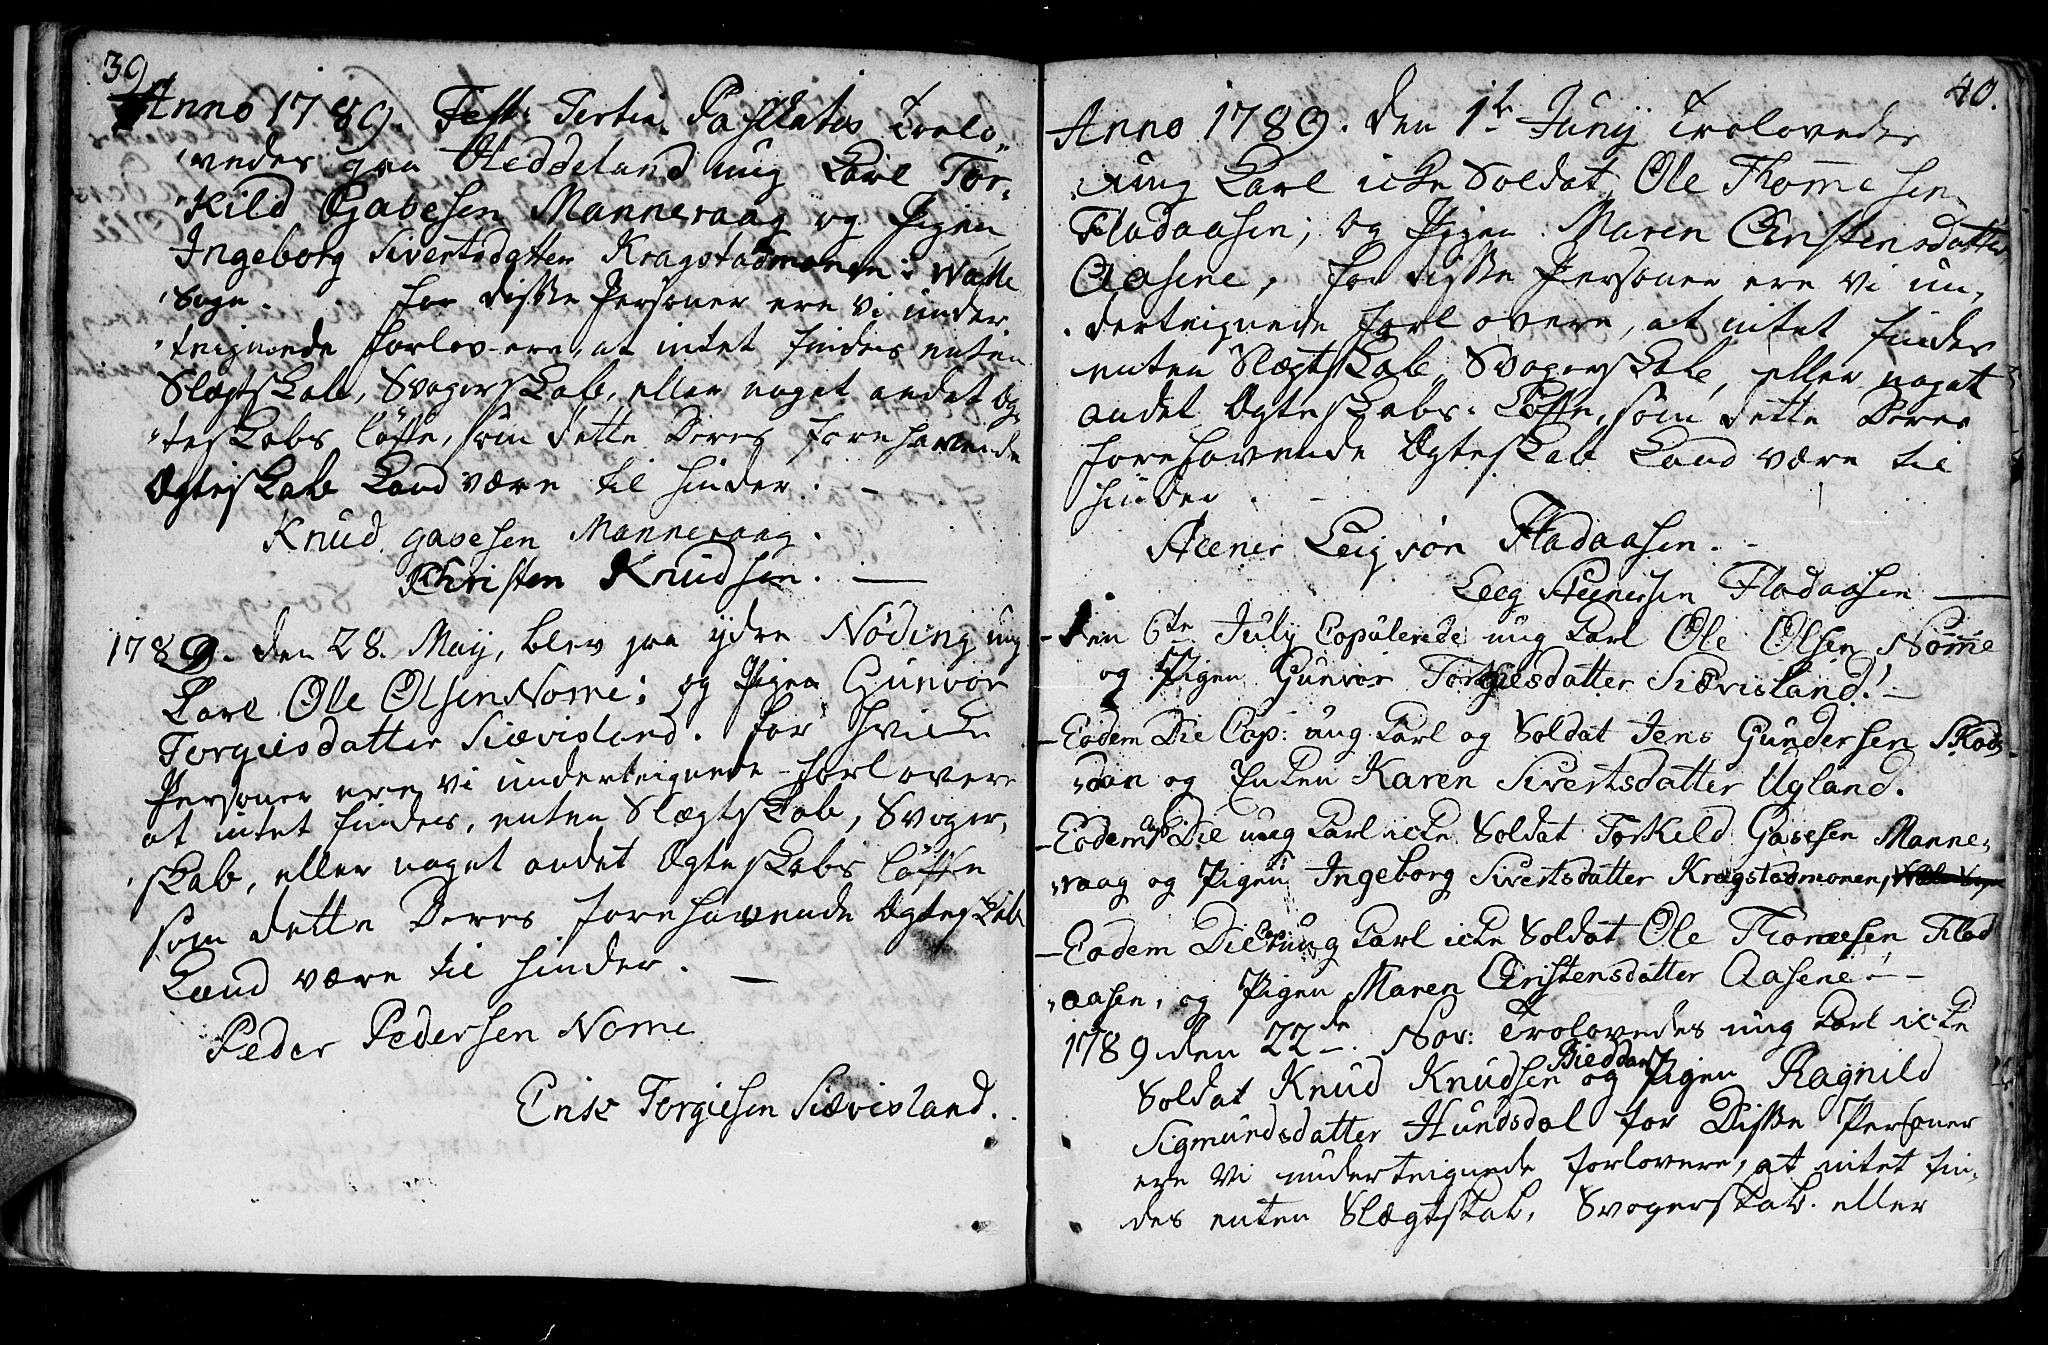 39
Anno 1789. Fest: Tertia Paschatos Trolo-
vedes paa Heddeland ung Karl Tor-
kild Gabesen Manneraag og Pigen
Ingeborg Sivertsdatter Kragstadmonen i Walle
Sogn. for disse Personer ere vi under-
teignede Forlovere, at intet findes enten
Slægtskab, Svogerskab, eller noget andet Æg-
teskabs løfte, som dette Deres forehavende
Ægteskab kand være til hinder. -
Knud gabesen Manneraag.
Khristen Knudsen. —
1789. den 28. Maij, blev paa ydre Nøding ung
Karl Ole Olsen Nome; og Pigen Gunvor
Torgiesdatter Siævisland. for hvilke
Personer ere vi underteignede forlovere
at intet findes, enten Slægtskab, Svoger-
skab, eller noget andet Ægteskabs løffte
som dette Deres forehavende Ægteskab
kand være til hinder. —
Peder Pedersen Nome
Erik Torgiesen Siævisland.
40.
Anno 1789. den 1te Junij Trolovedes
ung Karl icke Soldat Ole Thommesen
Fladaasen; og Pigen Maren Christensdatter
Aasene, for disse Personer ere vi un-
derteignede forlovere, at intet findes
enten Slægtskab, Svogerskab, eller noget
andet Ægteskabs-Løffte, som dette Deres
forehavende Ægteskab kand være til
hinder. -
Steener Leigsøn Fladaasen. -
Leeg Steenersen Fladaasen —
- Den 6te July Copulerede ung Karl Ole Olsen Nomme
og Pigen Gunvor Torgiesdatter Siævisland! —
- Eodem Die Cop: ung Karl og Soldat Jens Gundersen Skods-
daan og Enken Karen Sivertsdatter Ugland.
- Eodem Die Cop: ung Karl icke Soldat Torkild Gabesen Manne-
raag og Pigen Ingeborg Sivertsdatter Kragstadmonen,
- Eodem Die Cop: ung Karl icke Soldat Ole Thomesen Flad-
aasen, og Pigen Maren Christensdatter Aasene. -
1789 den 22de Nov: Trolovedes ung Karl icke
Soldat Knud Knudsen Bieddan og Pigen Ragnild
Sigmundsdatter Hundsdal for Disse Personer
ere Vi underteignede forlovere, at intet fin-
des enten Slægtskab, Svogerskab. eller